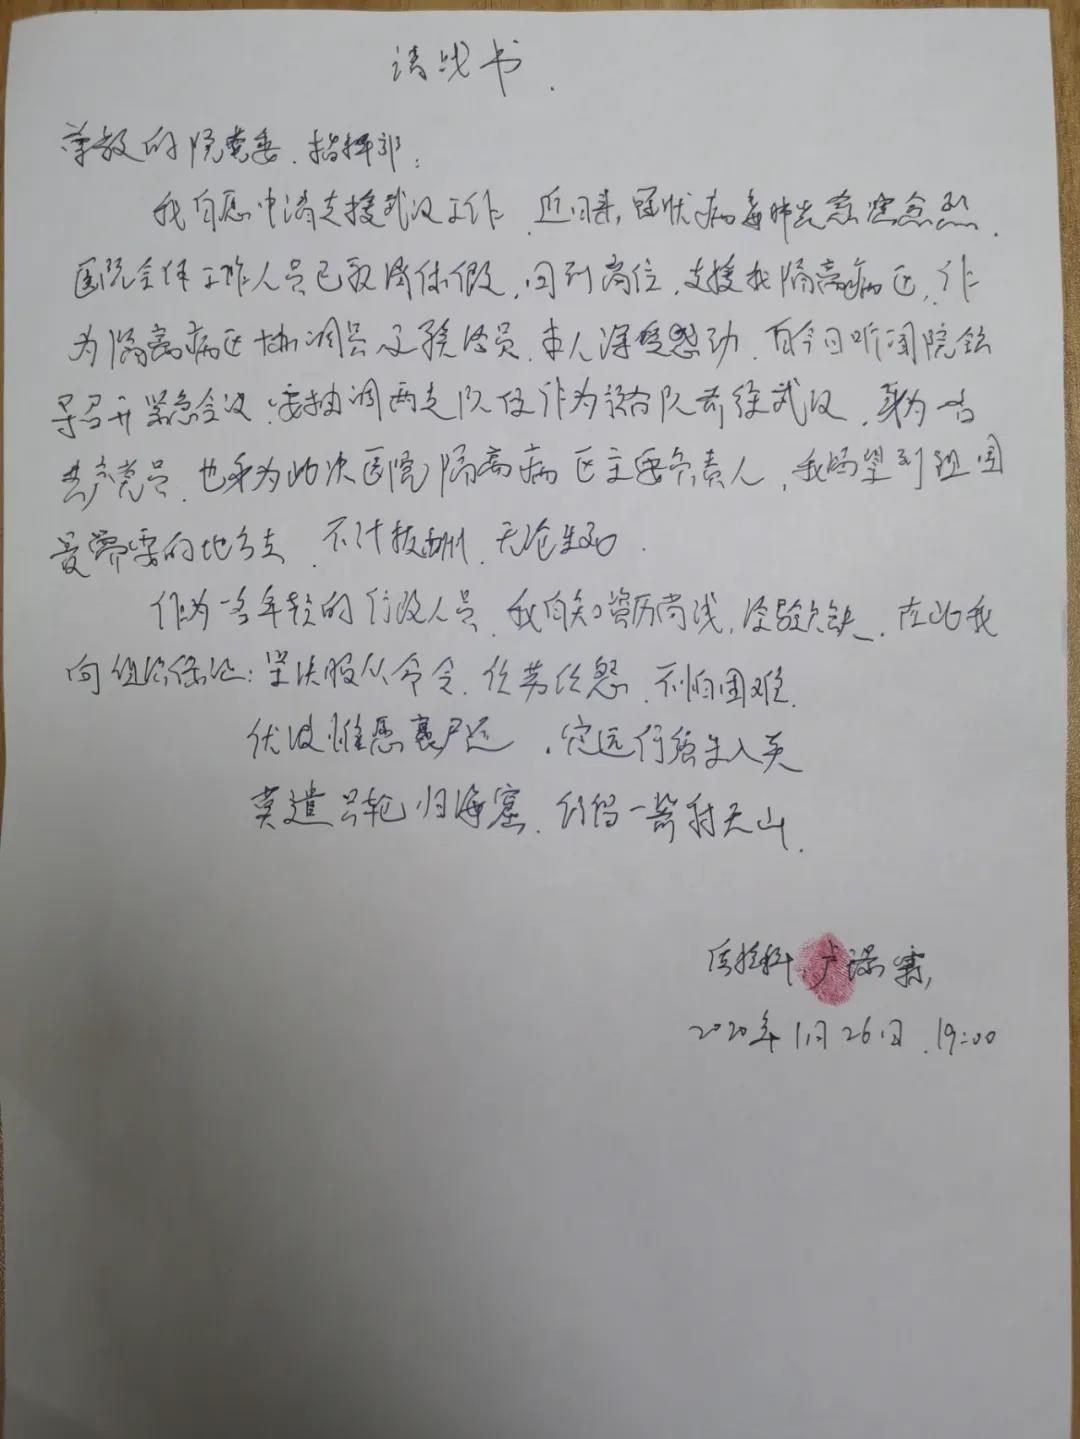 请战书.
尊敬的院党委、指挥部：
我自愿申请支援武汉工作。近日来，冠状病毒肺炎愈演愈烈，
医院全体工作人员已取消休假，回到岗位，支援我隔离病区，作
为隔离病区协调员及联络员，本人深受感动，自今日听闻院领
导召开紧急会议，要抽调两支队伍作为救治队前往武汉，身为一名
共产党员，也身为此次医院隔离病区主要负责人，我渴望到祖国
最需要的地方去，不计报酬，无论生死。
作为一名年轻的行政人员，我自知资历尚浅，经验欠缺，在此我
向组织保证：坚决服从命令，任劳任怨，不怕困难.
伏波惟愿裹尸还，定远何须生入关
莫遣只轮归海窟，仍留一箭射天山.
医务科：卢
2020年1月26日，19:00